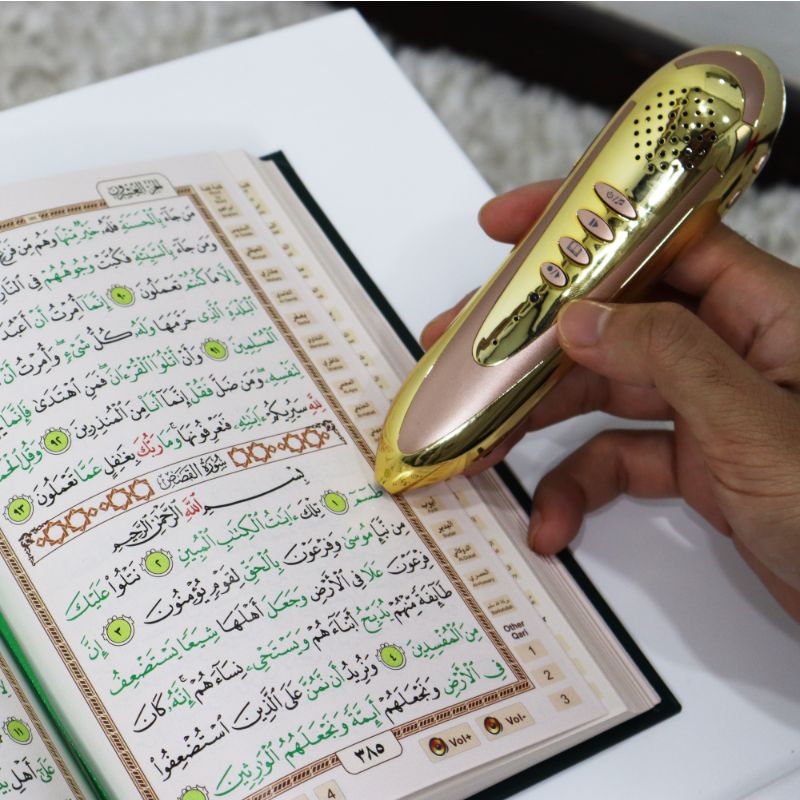 الجزء العشرون
مَن جَآءَ بِٱلْحَسَنَةِ فَلَهُۥ خَيْرٌ مِّنْهَا وَهُم مِّن فَزَعٍ
وَمَن جَآءَ بِٱلسَّيِّئَةِ فَكُبَّتْ وُجُوهُهُمْ فِى ٱلنَّارِ
إِلَّا مَا كُنتُمْ تَعْمَلُونَ ٩٠ إِنَّمَآ أُمِرْتُ أَنْ أَعْبُدَ
ٱلْبَلْدَةِ ٱلَّذِى حَرَّمَهَا وَلَهُۥ كُلُّ شَىْءٍ وَأُمِرْتُ أَنْ
ٱلْمُسْلِمِينَ ٩١ وَأَنْ أَتْلُوَا۟ ٱلْقُرْءَانَ فَمَنِ ٱهْتَدَىٰ فَإِنَّمَا
لِنَفْسِهِۦ وَمَن ضَلَّ فَقُلْ إِنَّمَآ أَنَا۠ مِنَ ٱلْمُنذِرِينَ ٩٢ وَقُلِ ٱلْحَمْدُ
لِلَّهِ سَيُرِيكُمْ ءَايَٰتِهِۦ فَتَعْرِفُونَهَا وَمَا رَبُّكَ بِغَٰفِلٍ عَمَّا تَعْمَلُونَ ٩٣
سُورَةُ القَصَصِ
بِسْمِ ٱللَّهِ ٱلرَّحْمَٰنِ ٱلرَّحِيمِ
طسٓمٓ ١ تِلْكَ ءَايَٰتُ ٱلْكِتَٰبِ ٱلْمُبِينِ ٢ نَتْلُوا۟ عَلَيْكَ
مِن نَّبَإِ مُوسَىٰ وَفِرْعَوْنَ بِٱلْحَقِّ لِقَوْمٍ يُؤْمِنُونَ ٣ إِنَّ
فِرْعَوْنَ عَلَا فِى ٱلْأَرْضِ وَجَعَلَ أَهْلَهَا شِيَعًا يَسْتَضْعِفُ
طَآئِفَةً مِّنْهُمْ يُذَبِّحُ أَبْنَآءَهُمْ وَيَسْتَحْىِۦ نِسَآءَهُمْ إِنَّهُۥ كَانَ
مِنَ ٱلْمُفْسِدِينَ ٤ وَنُرِيدُ أَن نَّمُنَّ عَلَى ٱلَّذِينَ ٱسْتُضْعِفُوا۟
فِى ٱلْأَرْضِ وَنَجْعَلَهُمْ أَئِمَّةً وَنَجْعَلَهُمُ ٱلْوَٰرِثِينَ
٣٨٥
Other
Qari
1
2
3
4
Vol+
Vol-
١١